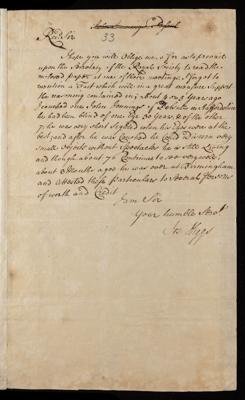 33
Rev.d Sir
I hope you will Oblige me, & for as to prevail
upon the Secretary of the Royal Society to read the
inclosed paper at one of their meetings. I forgot to
mention a Fact which will in a great measure support
the reasoning contained in it; about 4 or 5 years ago
I couched one John Jennings of
he had been blind of one Eye 20 years, & of the other
7. he was very short Sighted when his Eyes were at the
best, and after he was Couched he could Discern very
small Objects without Spectacles he is still Living
and though about 70 Continues to see very well,
about 2 Months agoe he was over at Birmingham
and attested these particulars to several persons
of worth and Credit
I am Sir
Your humble Serv.t